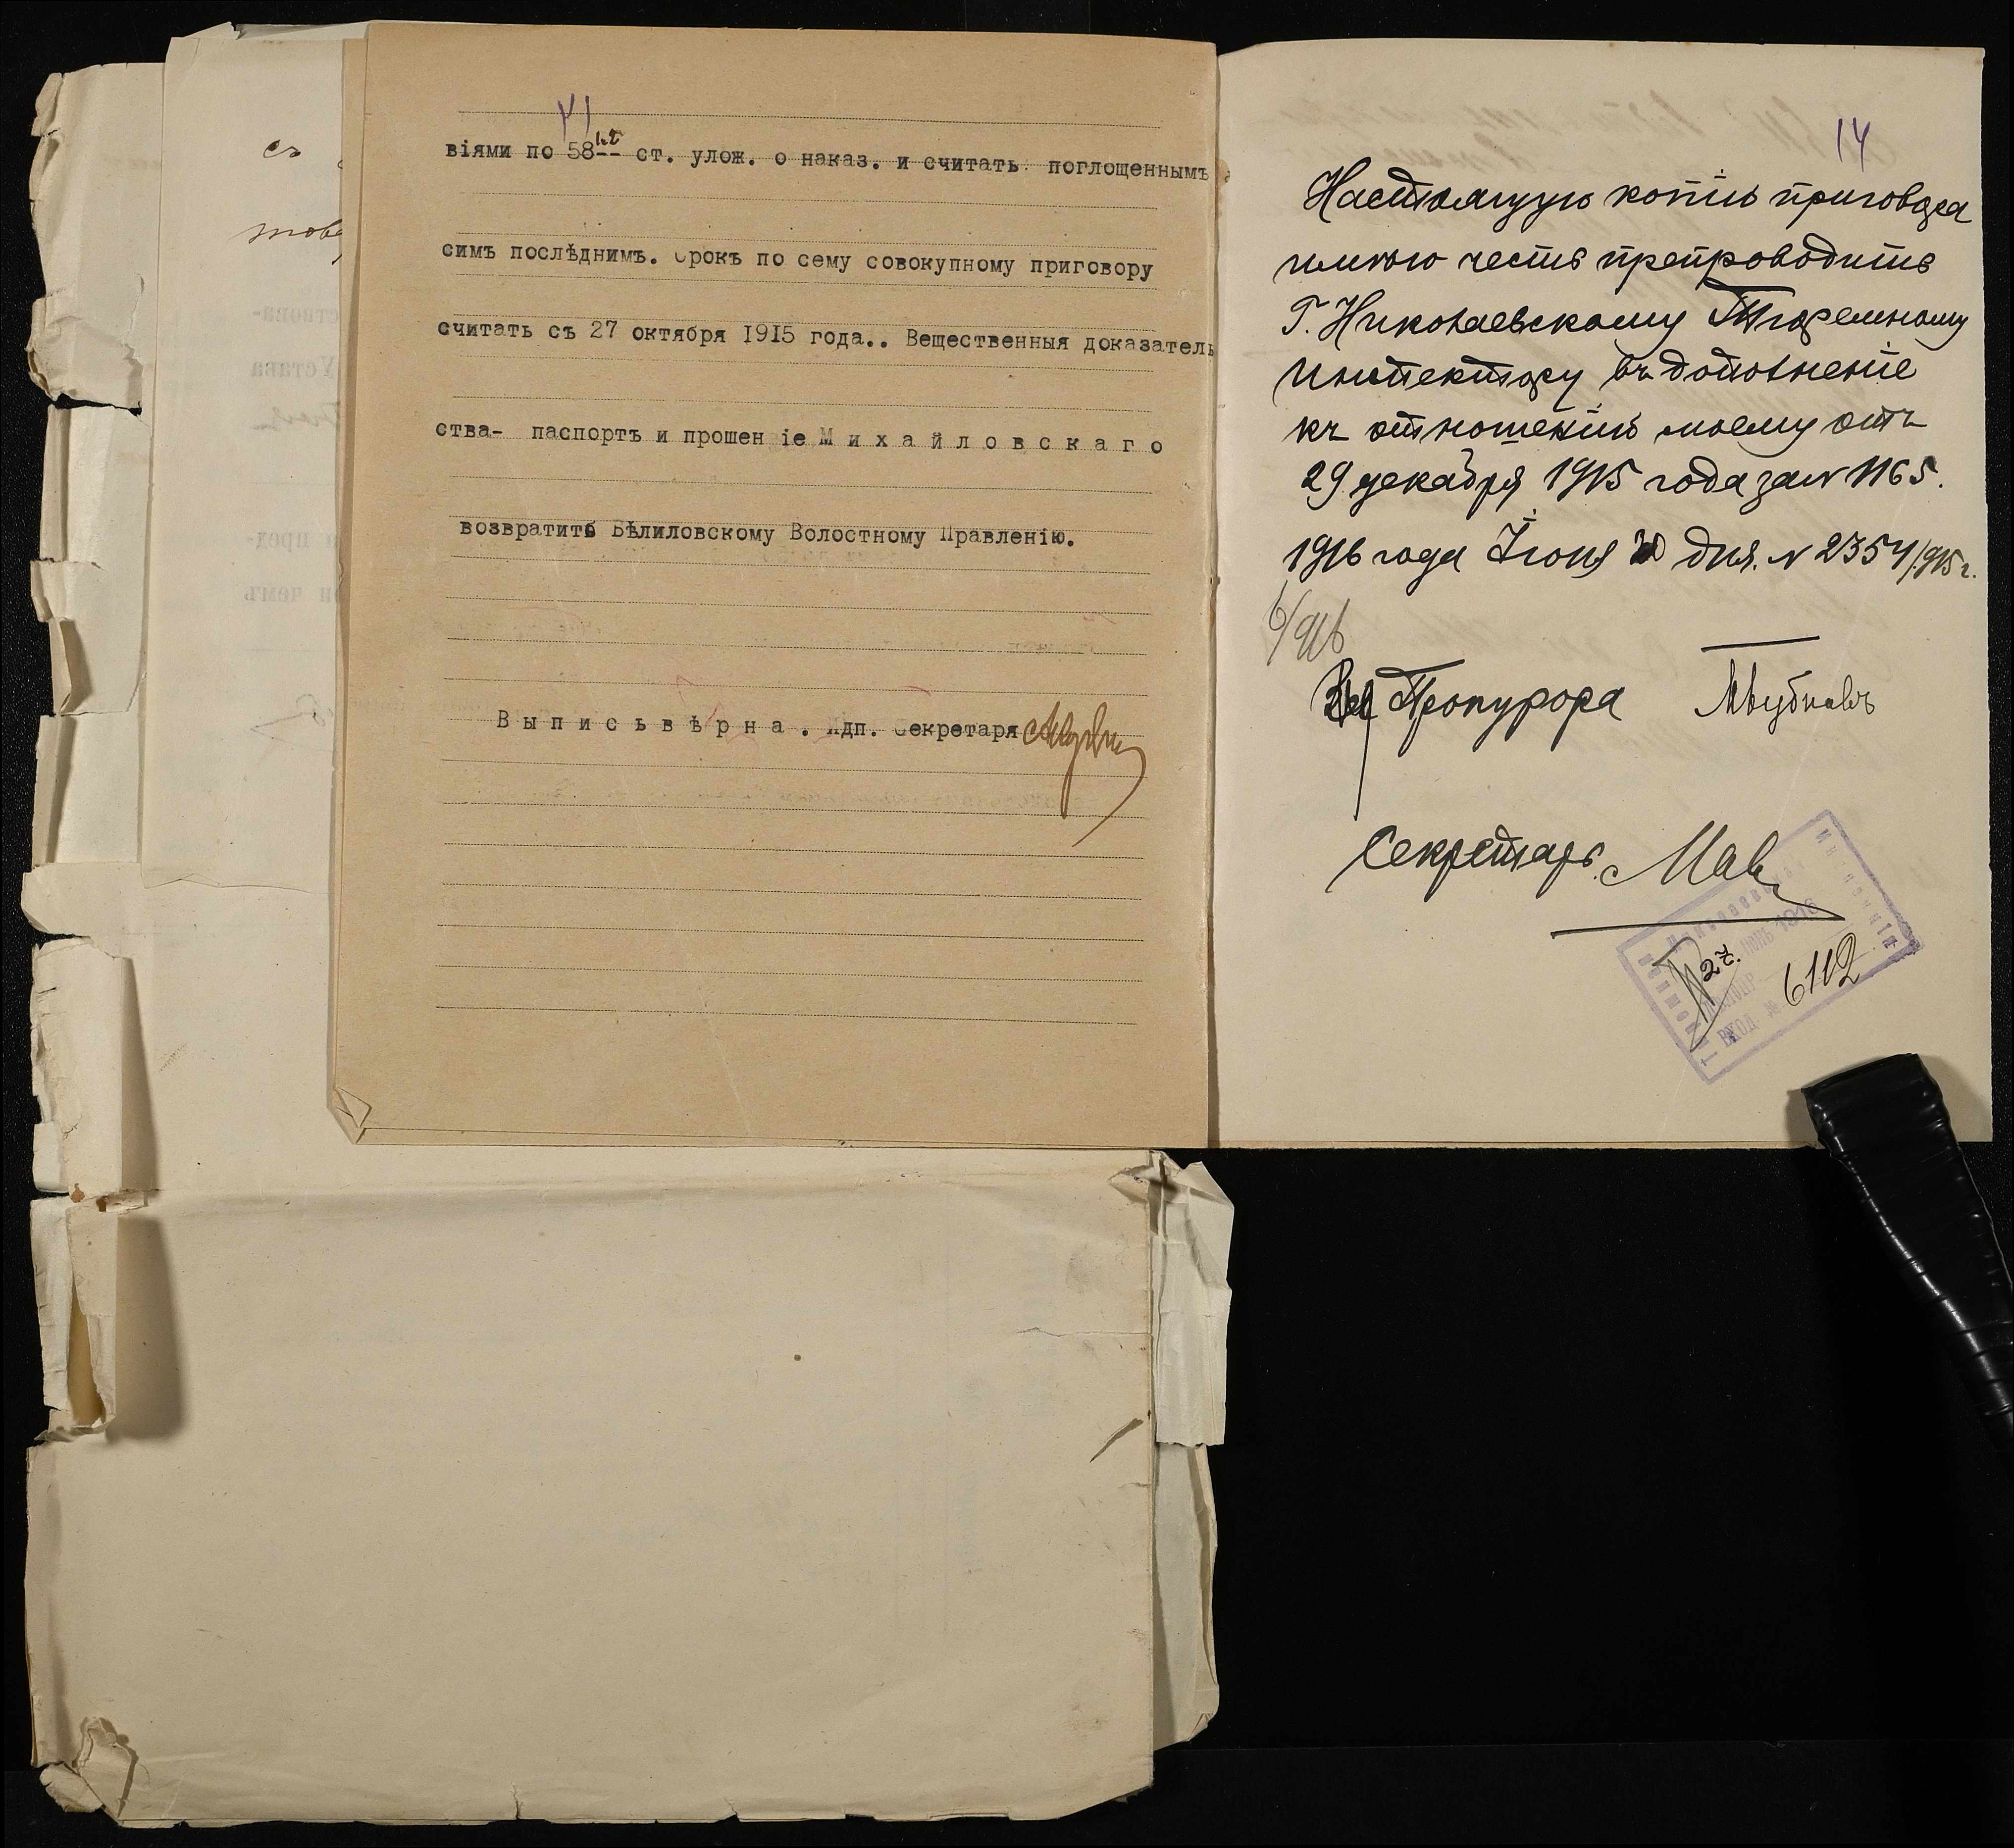 съ
віями по 58 ст. улож. о наказ. и считать поглощеннымъ
симъ послѣднимъ. Срокъ по сему совокупному приговору
считать съ 27 октября 1915 года.. Вещественныя доказатель
ства- паспортъ и прошеніе Михайловскаго
возвратить Бѣлиловскому Волостному Правленію.
Выпись вѣрна. Идп. Секретаря
14
Настоящую копію приговора
имѣю честь препроводить
Г. Николаевскому Тюремному
Инспектору въ дополненіе
къ отношенію моему отъ
29 декабря 1915 года за N 1165.
1916 года Іюня 20 дня. N 2354/915 г.
6/916
Прокурора
Секретарь
1916
27.
ВХОД. № 6112